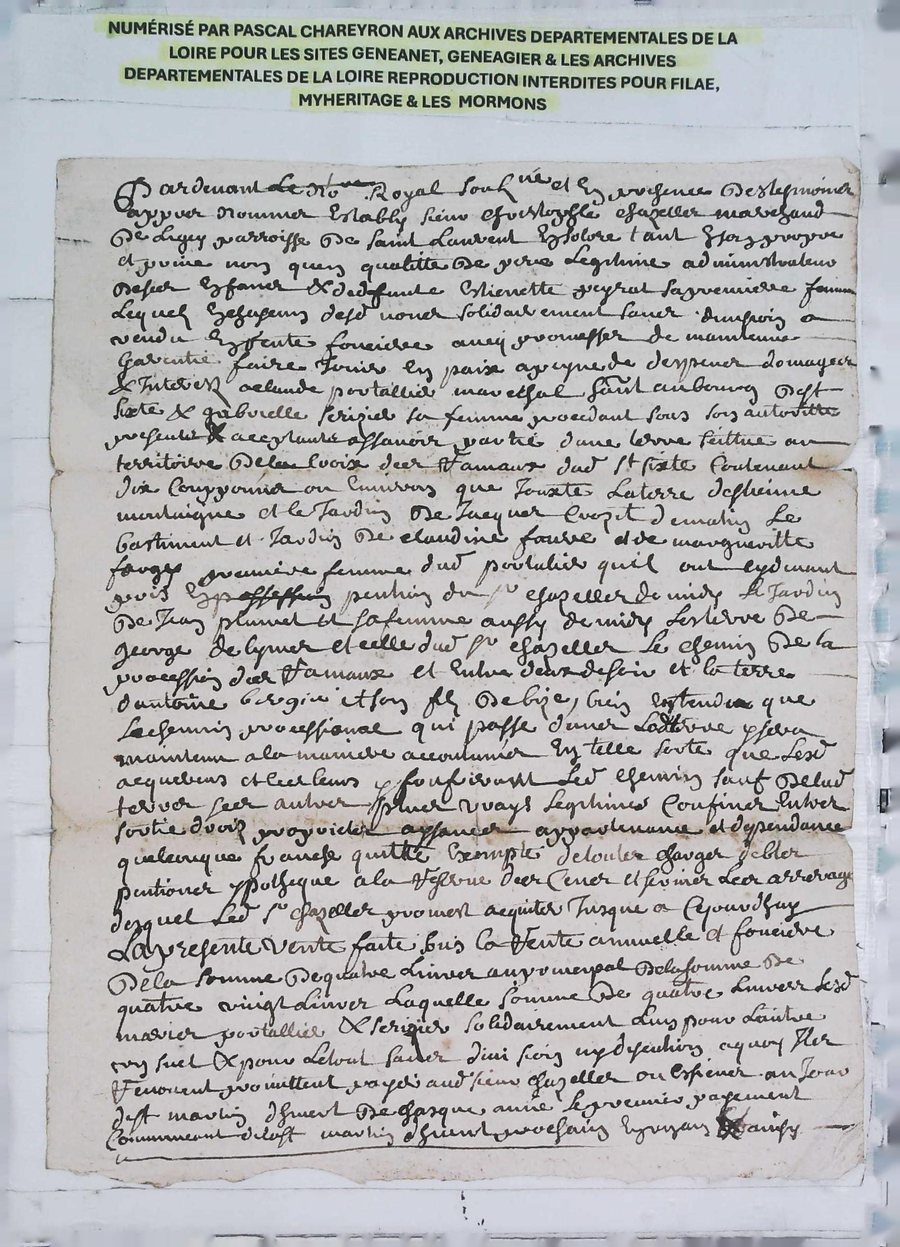 NUMÉRISÉ PAR PASCAL CHAREYRON AUX ARCHIVES DEPARTEMENTALES DE LA
LOIRE POUR LES SITES GENEANET, GENEAGIER & LES ARCHIVES
DEPARTEMENTALES DE LA LOIRE REPRODUCTION INTERDITES POUR FILAE,
MYHERITAGE & LES MORMONS
Pardevant Le No.re Royal soubz.né et En presence Des tesmoins
appres Nommes Estably sieur christophle chazelles marchand
De Ligny parroisse De Saint Laurent tant En son propre
et prive nom quen qualitte De pere Legitime administrateur
De ses Enfants & de deffunte Estienette peyrat sa premiere femme
Lequel desd noms solidairement sans division a
vendu En rente fonciere avec promesses de maintenue
Garentie faire Jouir En paix a peyne de despens domages
& Interest a claude portallier mareschal bourg De St
Sixte & Gabrielle serizier sa femme procedant sous son autoritte
presents & acceptants assavoir partie dune terre scittue au
territoire De la Croix des Rameaux dud St Sixte Contenant
dix Coupponnes ou Environ que Jouxte La terre destienne
montaigne et le Jardin De Jacques Crozet de matin Le
bastiment et Jardin De claudine foure et de margueritte
premiere femme dud portalier quil ont cydevant
pris En pention du Sr chazelles de midy Le Jardin
De Jean plumet et sa femme aussy de midy Les terre De
George et celle dud Sr chazelles Le chemin De la
procession des Rameaux et Entre deux de soir et la terre
dantoine et son fils De bize, bien Entendu que
Le chemin processional qui passe dans Ladterre sera
maintenu a la maniere accoutumee En telle sorte que Lesd
acquereurs et les leurs souffriront Led chemin sauf De lad
terre ses autres plus vrays Legitimes Confines Entrees
sortie drois proprietes aysances appartenance et dependance
quelconque franche quitte Exempte de toutes charges debtes
pentions ypotheque a la Reserve des Cens et servis Les arrerages
desquel Led Sr chazelles promest aquiter Jusque a Cejourdhuy
La presente vente faite sous la Rente annuelle et fonciere
De la somme De quatre Livres au principal De la somme De
quatre vingt Livres Laquelle somme De quatre Livres Lesd
maries portallier & serizier solidairement Luns pour Lautre
un seul & pour Le tout sans division ny discution a quoy Ils
Renoncent promittent payer aud sieur chazelles ou Es siens au Jour
de St martin dhivert De chasque annee Le premier payement
Commencant de la St martin dhivert prochain